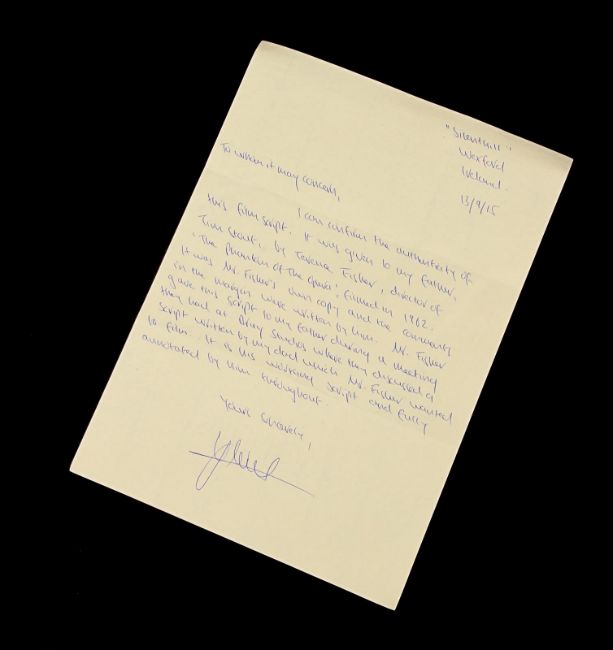 Wexford
Ireland.
13/9/15
To whom it may concern,
I can confirm the authenticity of
this film script. It was given to my father,
Tim by Terence Fisher, director of
'The Phantom of the Opera', filmed in 1962.
It was Mr. Fisher's own copy and the comments
in the margin were written by him. Mr. Fisher
gave this script to my father during a meeting
they had at Bray Studios where they discussed a
script written by my dad which Mr. Fisher wanted
to film. It is his working script and fully
annotated by him throughout.
Yours sincerely,